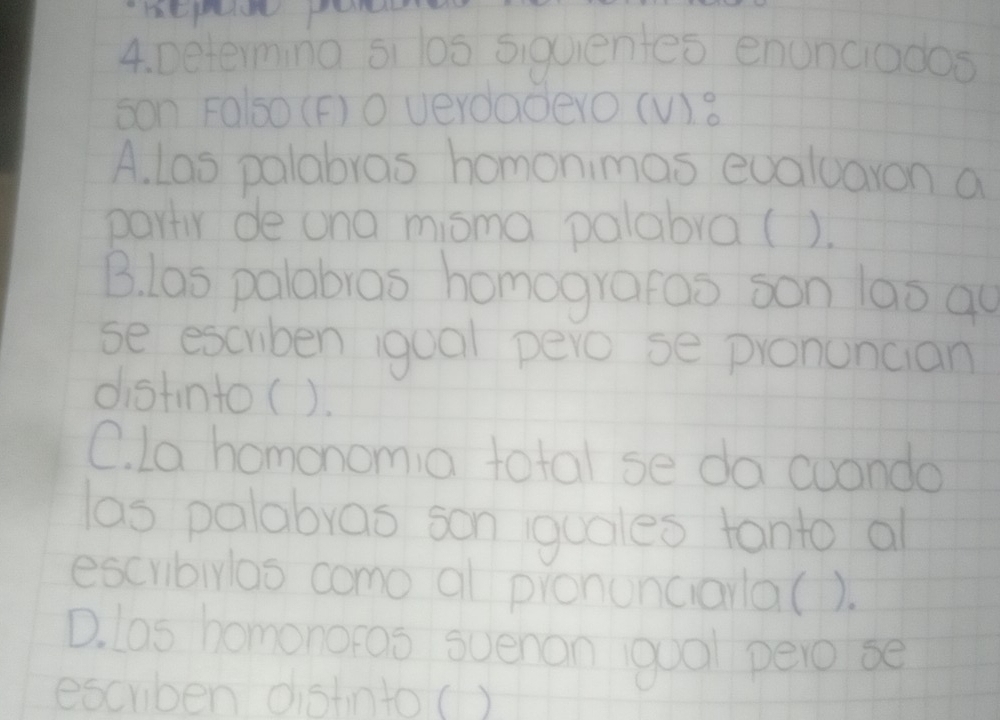 4.Determino si los siguientes enunciados
son Falso (F) o verdadero (V):
A.Las palabras homonimas evaluaron a
partir de una misma palabra ( ).
B.las palabras homografas son las qu
se escriben igual pero se pronuncian
distinto ( ).
C.la homonomia total se da cuando
las palabras son iguales tanto al
escribirlas como al pronunciarla ( ).
D.las homonofas suenan igual pero se
escriben distinto ( )